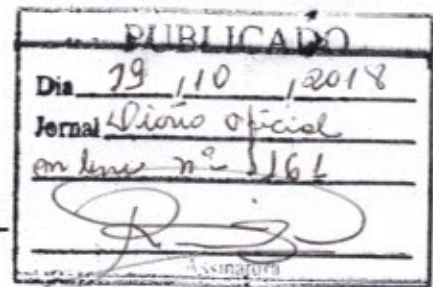 PUBLICADO
Dia 19 / 10 / 2018
Jornal Diário oficial
nº 1161
Assinatura